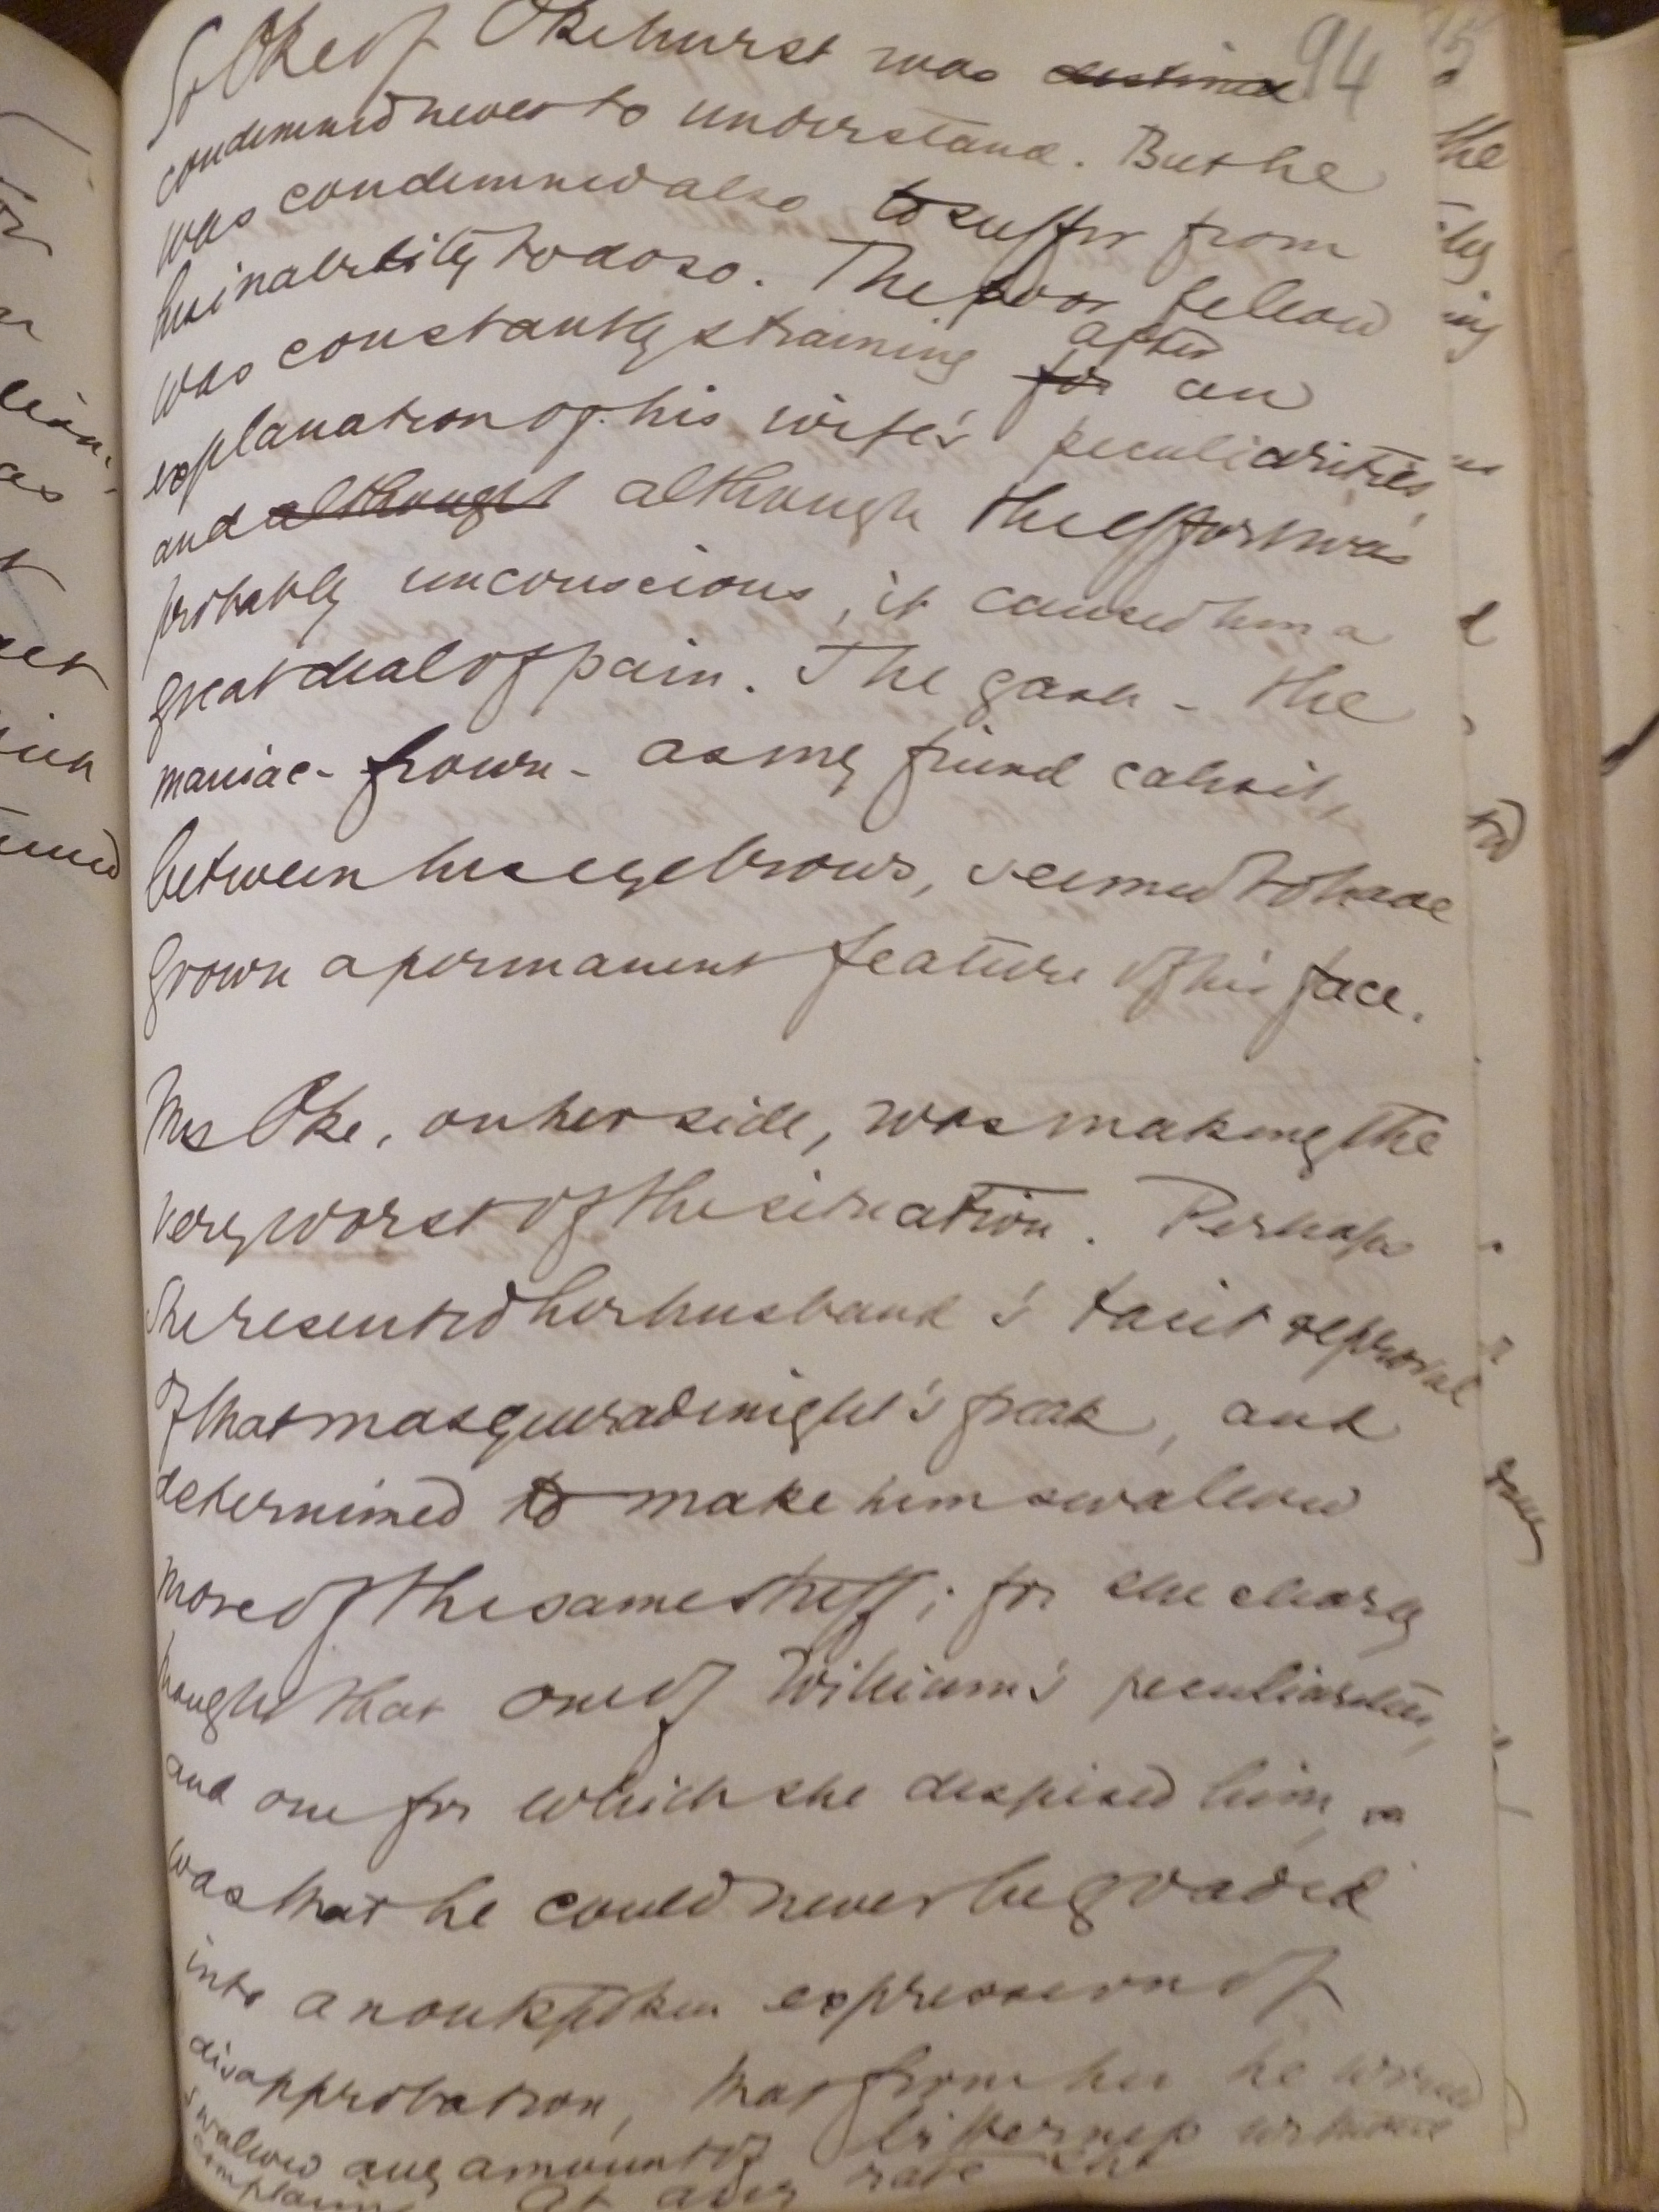 94
So Oke of Okehurst was destined
condemned never to understand. But he
was condemned also to suffer from
his inability to do so. The poor fellow
was constantly straining for after an
explanation of his wife's peculiarities,
and although although the effort was
probably unconscious, it caused him a
great deal of pain. The gash - the
maniac-frown - as my friend calls it,
between his eyebrows, seemed to have
grown a permanent feature of his face.
Mrs Oke, on her side, was making the
very worst of the situation. Perhaps
she resented her husband's tacit reproval
of that masquerade night's freak, and
determined to make him swallow
more of the same stuff; for she clearly
thought that one of William's peculiarities,
and one for which she despised him,
was that he could never be goaded
into an outspoken expression of
disapprobation, that from her he would
swallow any amount of bitterness without
complaining At any rate she